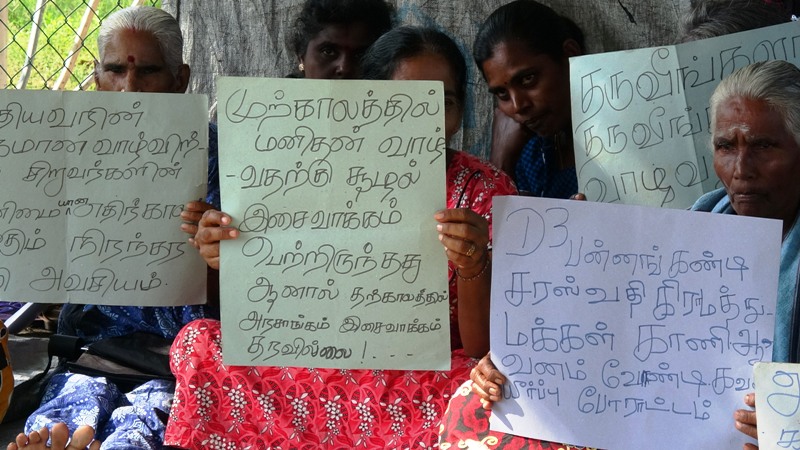 தியவரின்
கமான வாழ்விற்-
சிறுவர்களின்
னிமையான எதிர்கால
கும் நிரந்தர
அவசியம்.
முற்காலத்தில்
மனிதன் வாழ்
-வதற்கு சூழல்
இசைவாக்கம்
பெற்றிருந்தது
ஆனால் தற்காலத்தில்
அரசாங்கம் இசைவாக்கம்
தரவில்லை! . - - -
தருவீங்களா
தருவீங்
வாழ்வ
D3 பன்னங்கண்டி
சரஸ்வதி கிராமத்து
மக்கள் காணி ஆ
வனம் வேண்டி கவ
யீர்ப்பு போராட்டம்